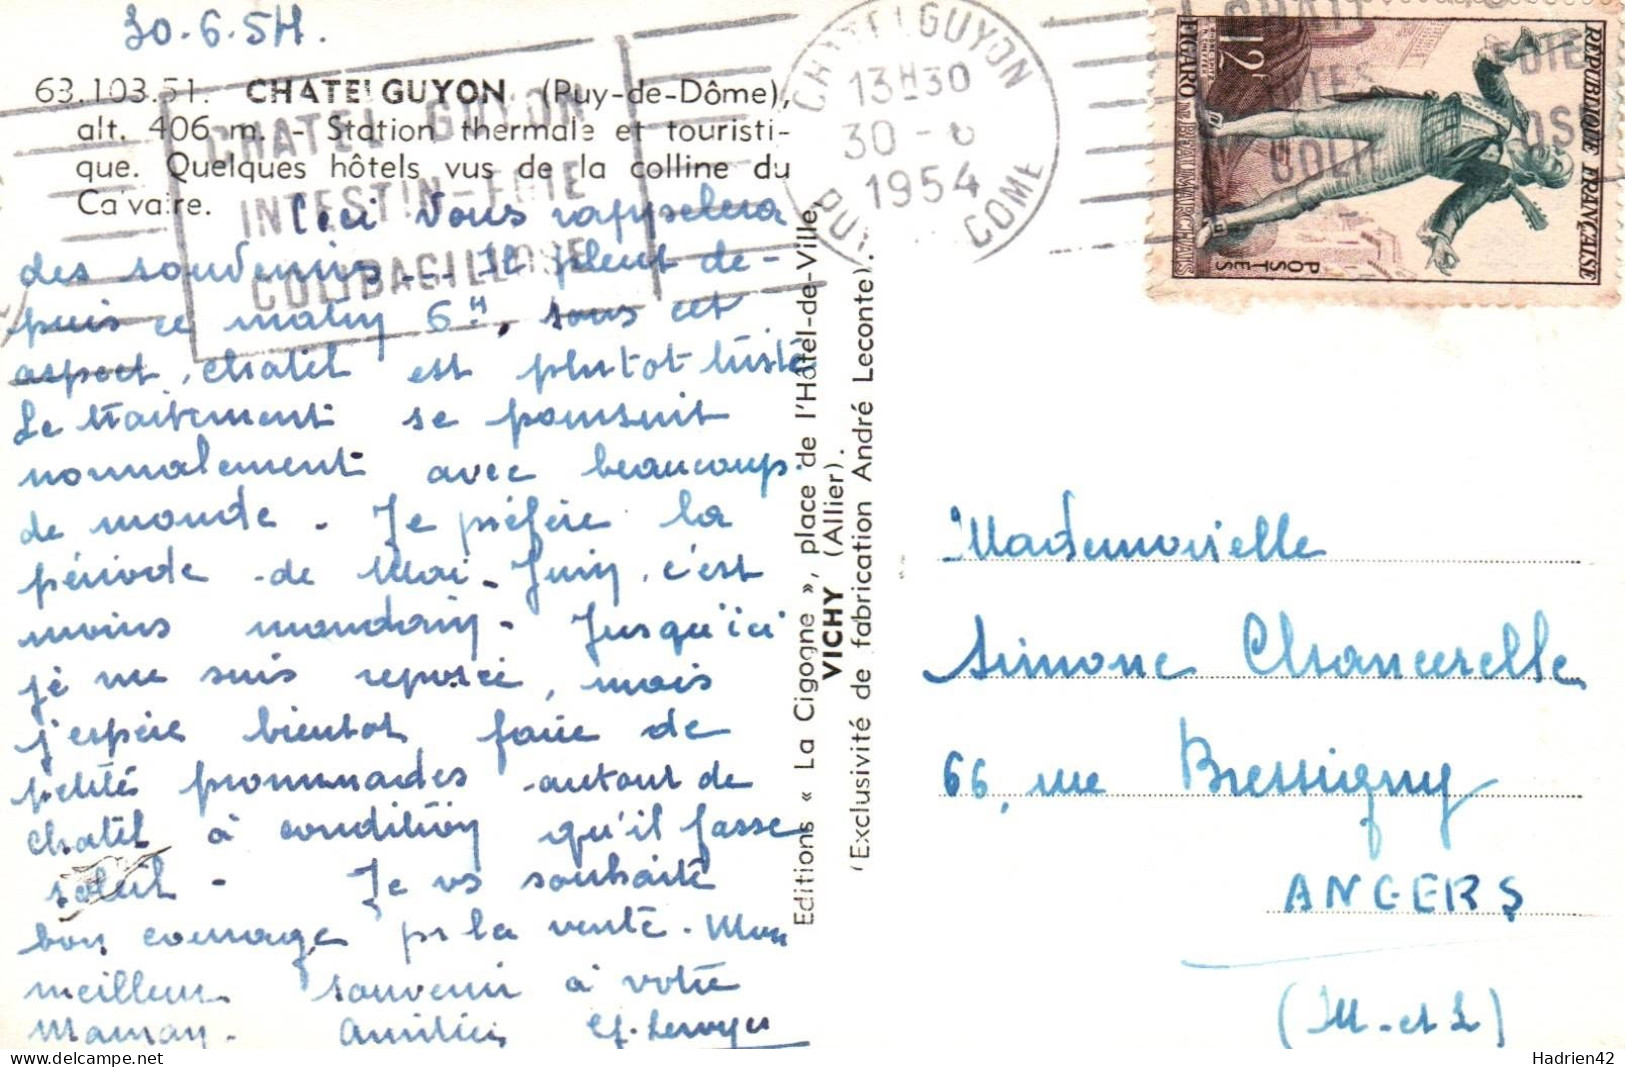 30.6.54.
63.103.51. CHATEL GUYON (Puy-de-Dôme),
alt. 406 m. - Station thermale et touristi-
que. Quelques hôtels vus de la colline du
Calvaire.
CHATEL GUYON
INTESTIN-FOIE
COLIBACILLOSE
CHATELGUYON
13H30
30-6
1954
PUY DOME
REPUBLIQUE FRANÇAISE
POSTES
12F
FIGARO DE BEAUMARCHAIS
Ceci vous rappelera
des souvenirs... Il pleut de-
puis ce matin 6H, sous cet
aspect, chatel est plutot triste
Le traitement se poursuit
normalement avec beaucoup
de monde. Je préfère la
période de Mai-Juin, c'est
moins mondain. Jusqu'ici
je me suis reposée, mais
j'espère bientot faire de
petites promenades autour de
chatel à condition qu'il fasse
soleil. Je vs souhaite
bon courage pr la vente. Mon
meilleur souvenir à votre
Maman. Amitiés
Editions « La Cigogne », place de l'Hôtel-de-Ville,
VICHY (Allier).
(Exclusivité de fabrication André Leconte).
Mademoiselle
Simone Chancerelle
66, rue Bressigny
ANGERS
(M.-et L)
Hadrien42